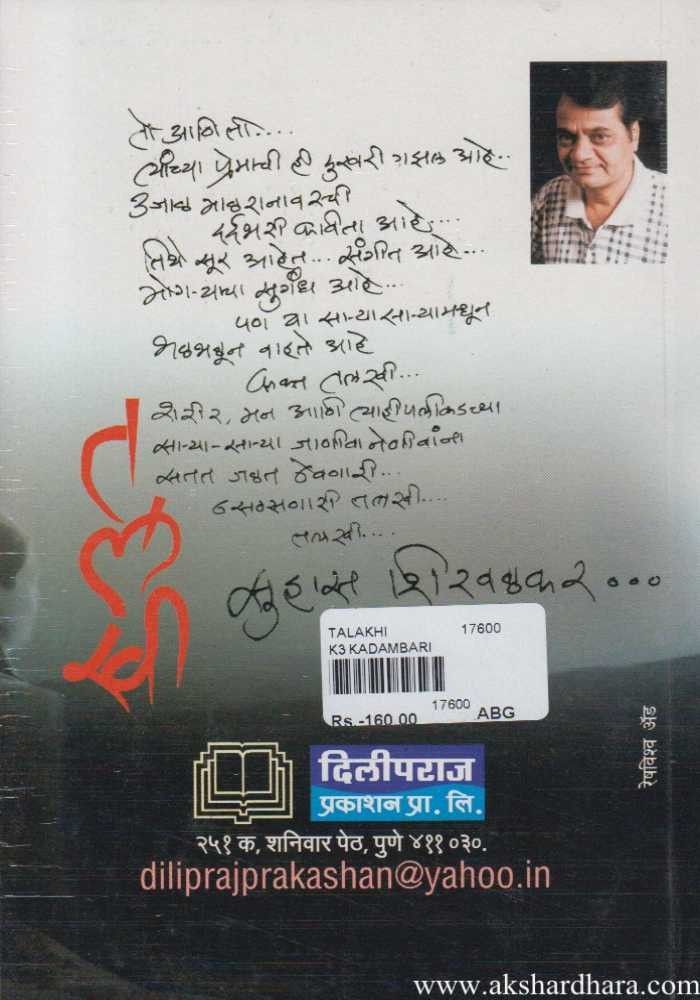 तो आणि ती....
त्यांच्या प्रेमाची ही दुखरी गझल आहे..
उजाळ माळरानावरची
दर्दभरी कविता आहे....
तिथे सूर आहेत... संगीत आहे...
मोगऱ्याचा सुगंध आहे...
पण या साऱ्या साऱ्यामधून
भळभळून वाहते आहे
फक्त तलखी...
शरीर, मन आणि त्याहीपलीकडच्या
साऱ्या-साऱ्या जाणीवा नेणीवांना
सतत जळत ठेवणारी...
ठसठसणारी तलखी....
तलखी....
सुहास शिरवळकर...
तलखी
TALAKHI 17600
K3 KADAMBARI
17600
Rs.-160.00 ABG
दिलीपराज
प्रकाशन प्रा. लि.
रेषविश्व अ‍ॅड
२५१ क, शनिवार पेठ, पुणे ४११०३०.
diliprajprakashan@yahoo.in
www.akshardhara.com